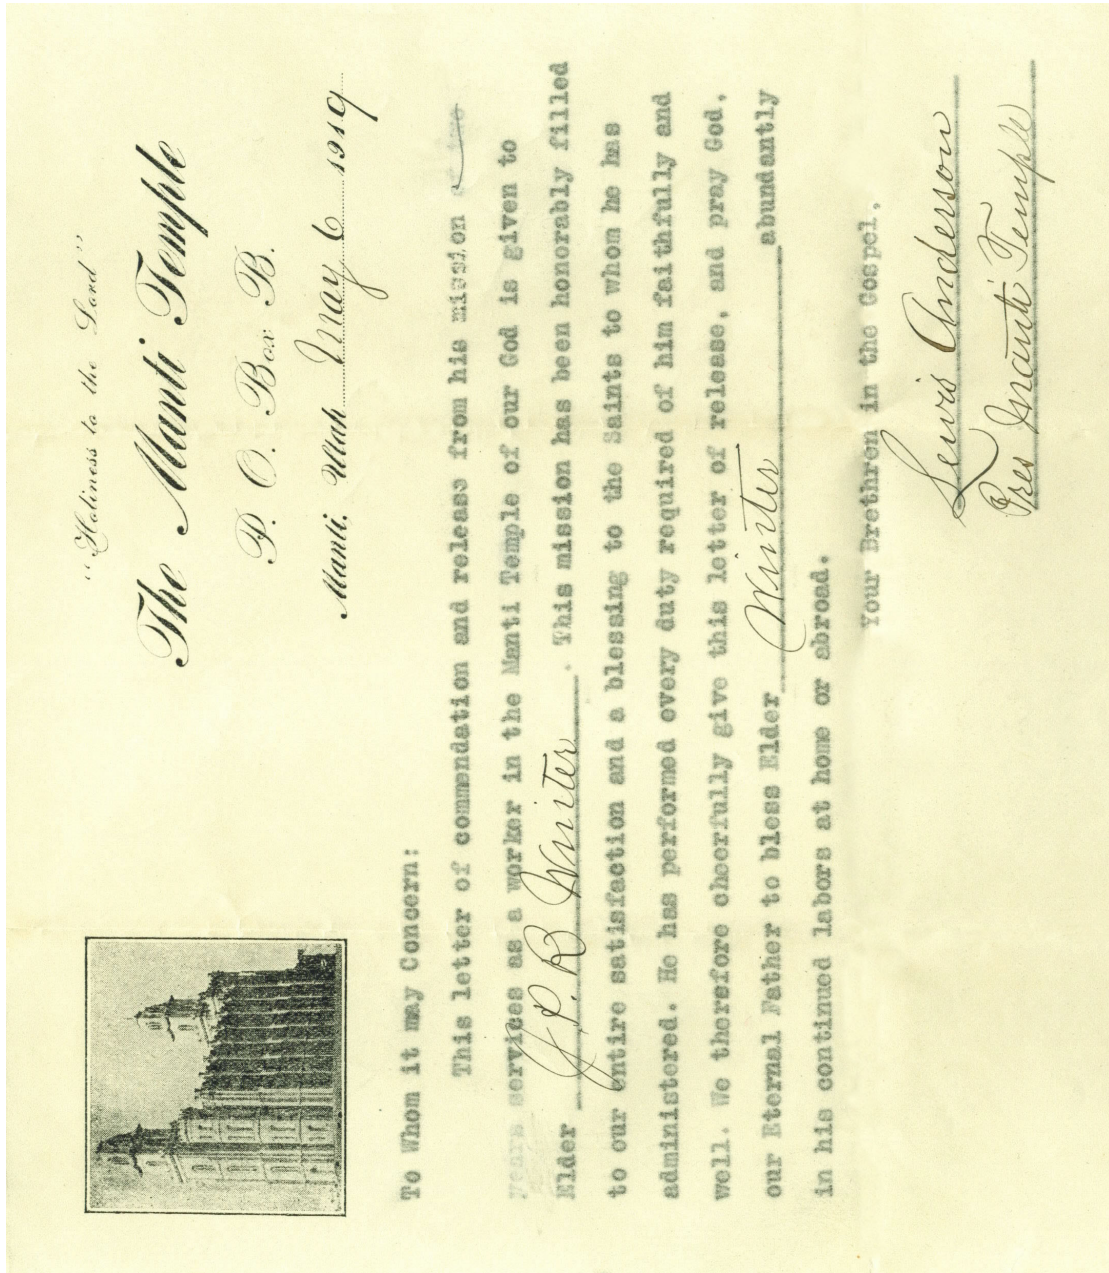 "Holiness to the Lord"
The Manti Temple
P. O. Box B.
Manti, Utah May 6 1919
To Whom it may Concern:
This letter of commendation and release from his mission
years services as a worker in the Manti Temple of our God is given to
Elder J. P. R Winter . This mission has been honorably filled
to our entire satisfaction and a blessing to the Saints to whom he has
administered. He has performed every duty required of him faithfully and
well. We therefore cheerfully give this letter of release, and pray God,
our Eternal Father to bless Elder Winter abundantly
in his continued labors at home or abroad.
Your Brethren in the Gospel,
Lewis Anderson
Pres Manti Temple